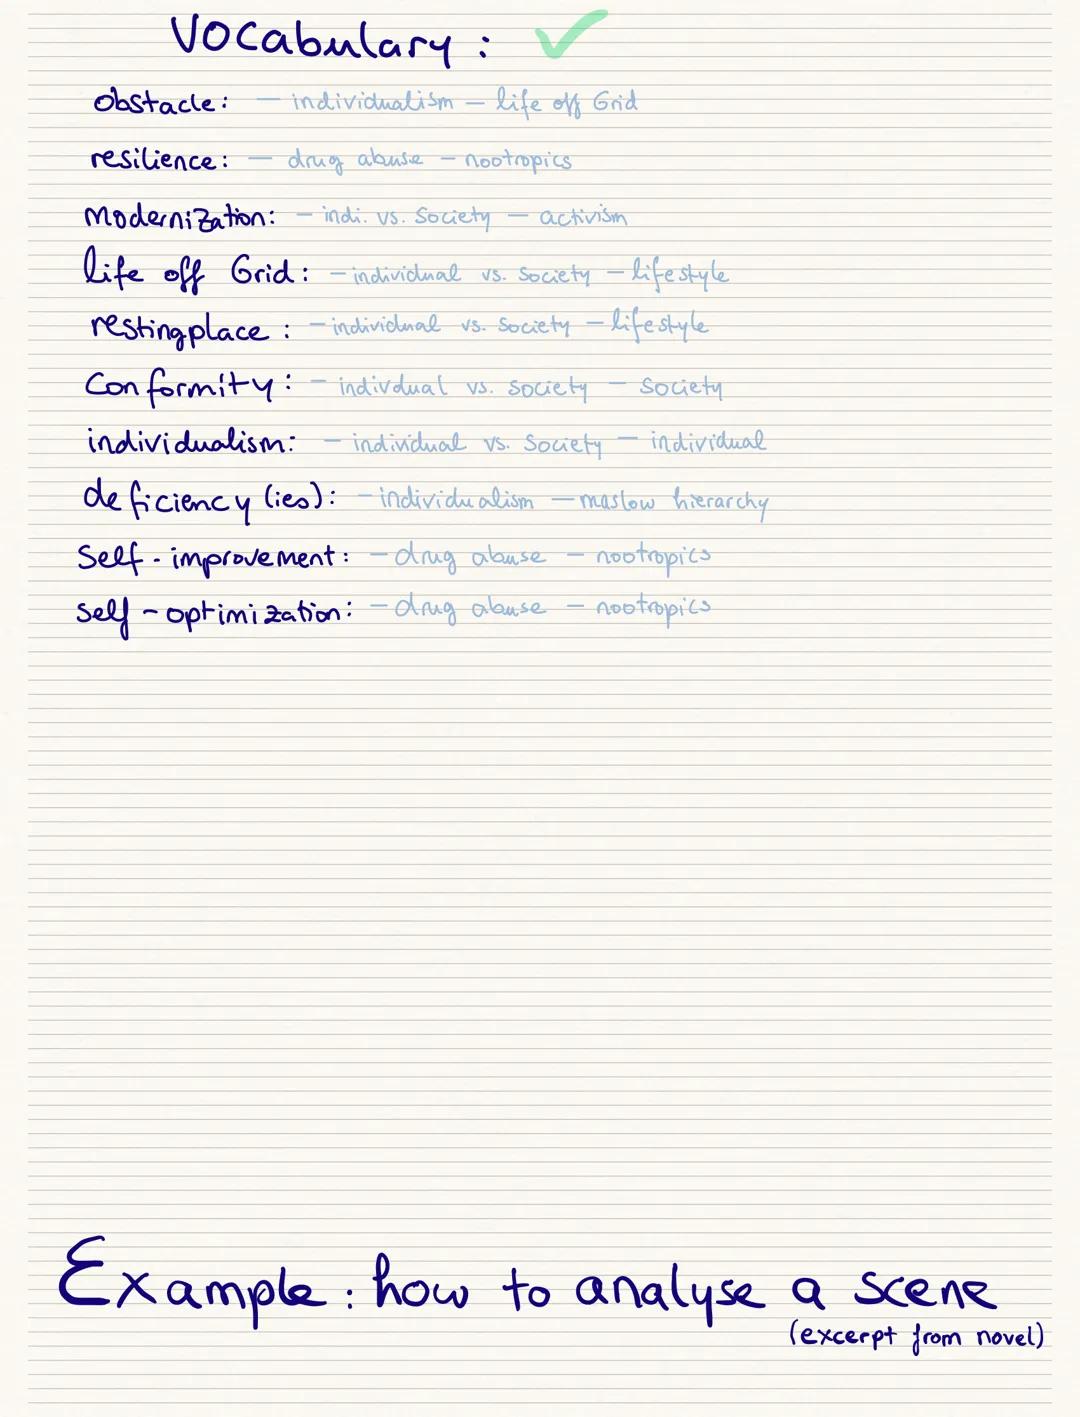 Vocabulary:
obstacle: — individualism — life off Grid
resilience: — drug abuse — nootropics
Modernization: — indi. vs. Society — activism
life off Grid: — individual vs. Society — lifestyle
restingplace: — individual vs. Society — lifestyle
Conformity: — indivdual vs. society — Society
individualism: — individual vs. Society — individual
deficiency (ies): — individualism — maslow hierarchy
Self-improvement: — drug abuse — nootropics
self-optimization: — drug abuse — nootropics
Example: how to analyse a scene
(excerpt from novel)